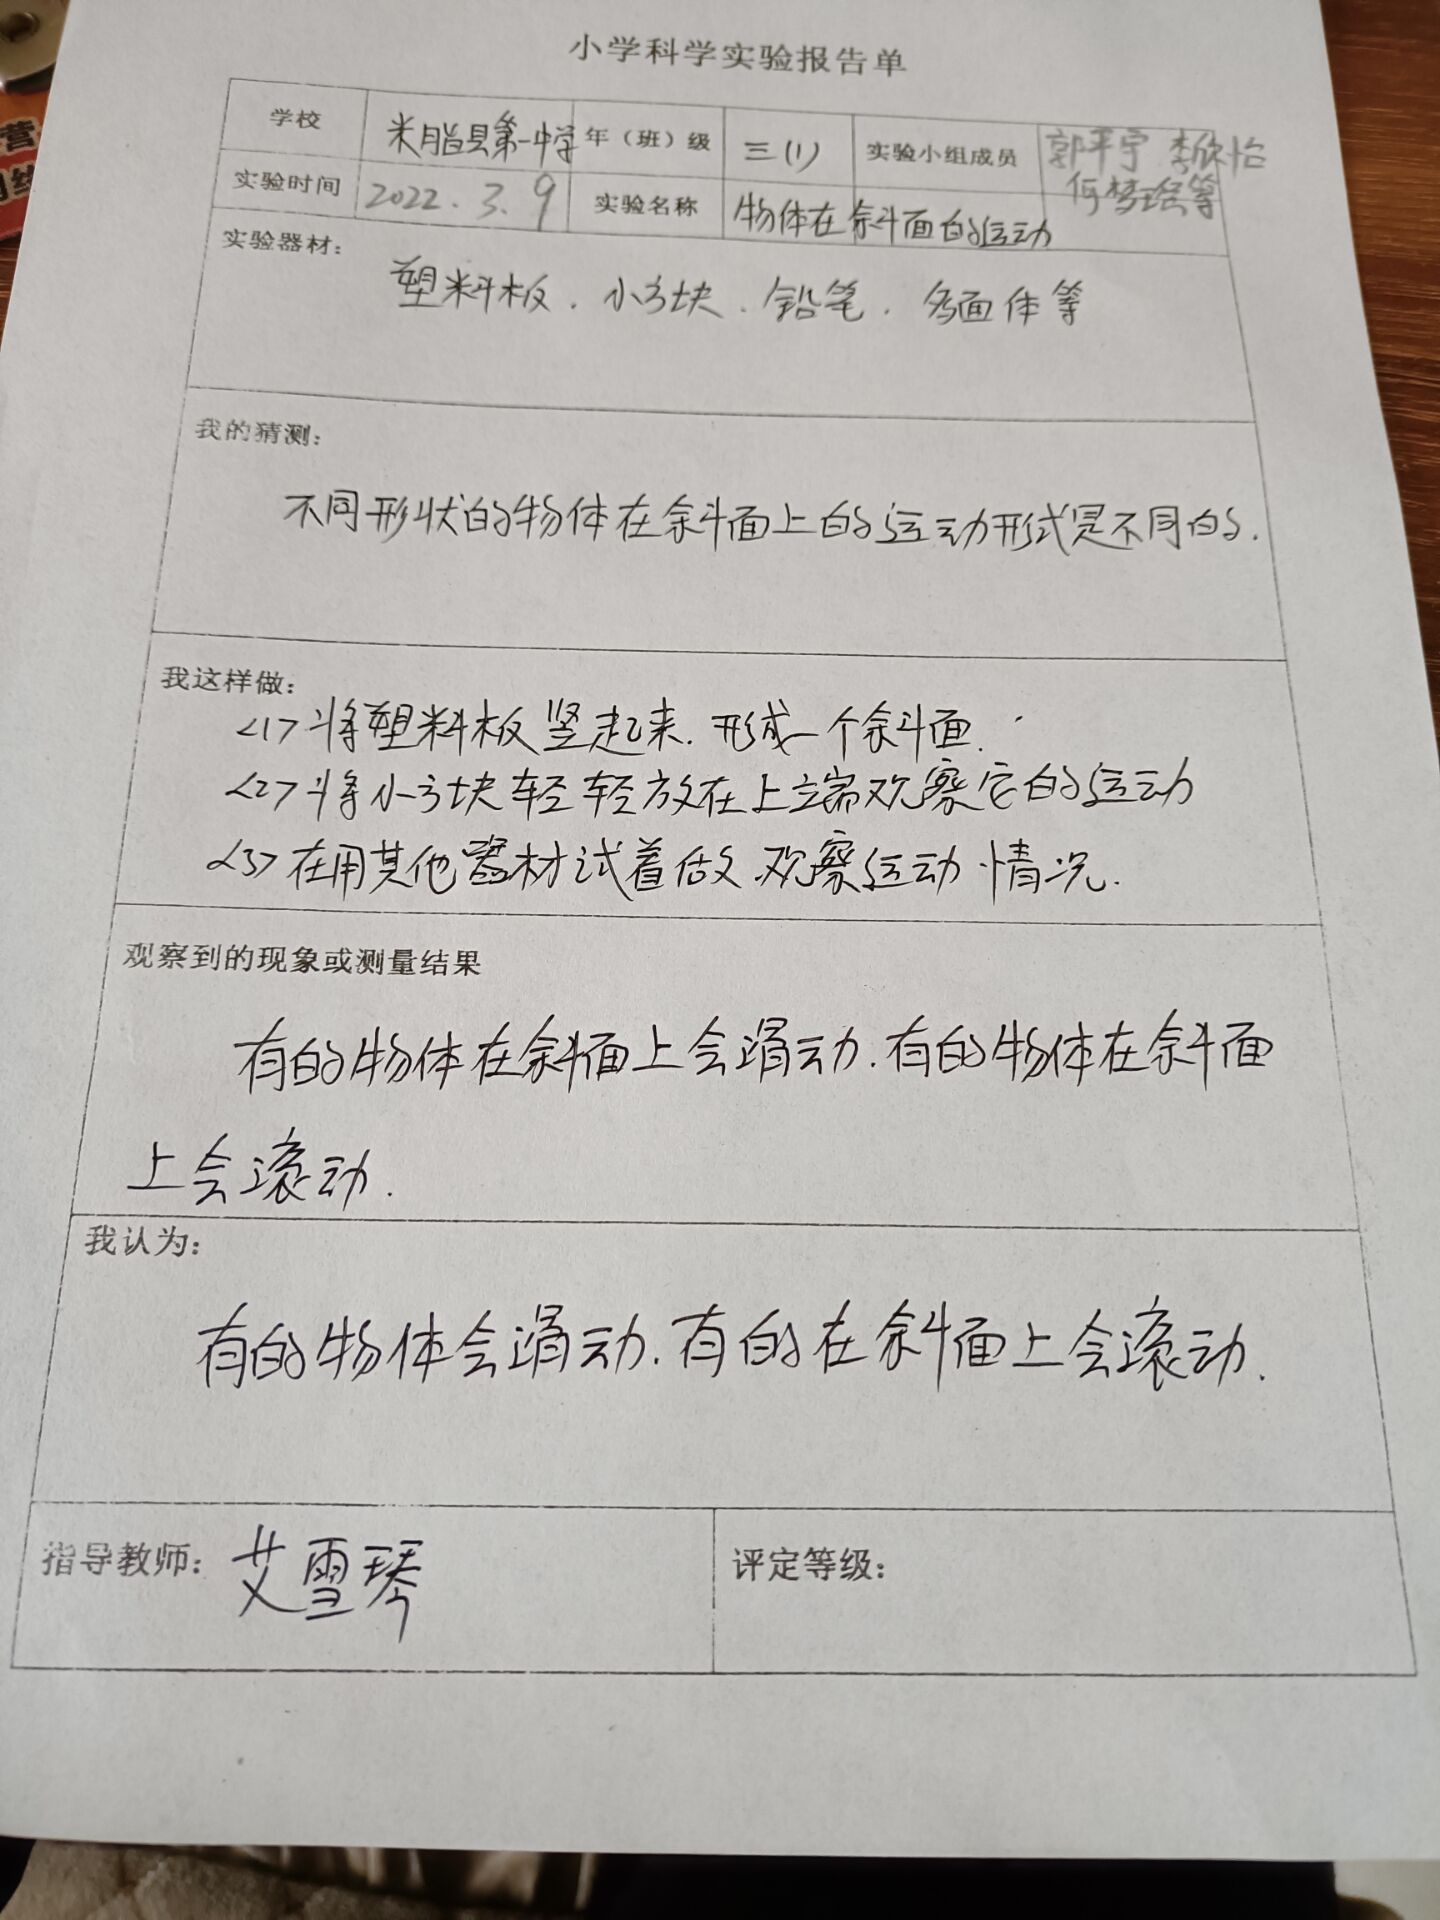 营
小学科学实验报告单
学校 米脂县第一中学 年（班）级 三（1） 实验小组成员 郭平宇 李欣怡
何梦瑶等
实验时间 2022.3.9 实验名称 物体在斜面的运动
实验器材：
塑料板.小方块.铅笔.多面体等
我的猜测：
不同形状的物体在斜面上的运动形式是不同的.
我这样做：
<1>将塑料板竖起来.形成一个斜面.
<2>将小方块轻轻放在上端观察它的运动
<3>在用其他器材试着做.观察运动情况.
观察到的现象或测量结果
有的物体在斜面上会滑动.有的物体在斜面
上会滚动.
我认为：
有的物体会滑动.有的在斜面上会滚动.
指导教师：艾雪琴 评定等级：